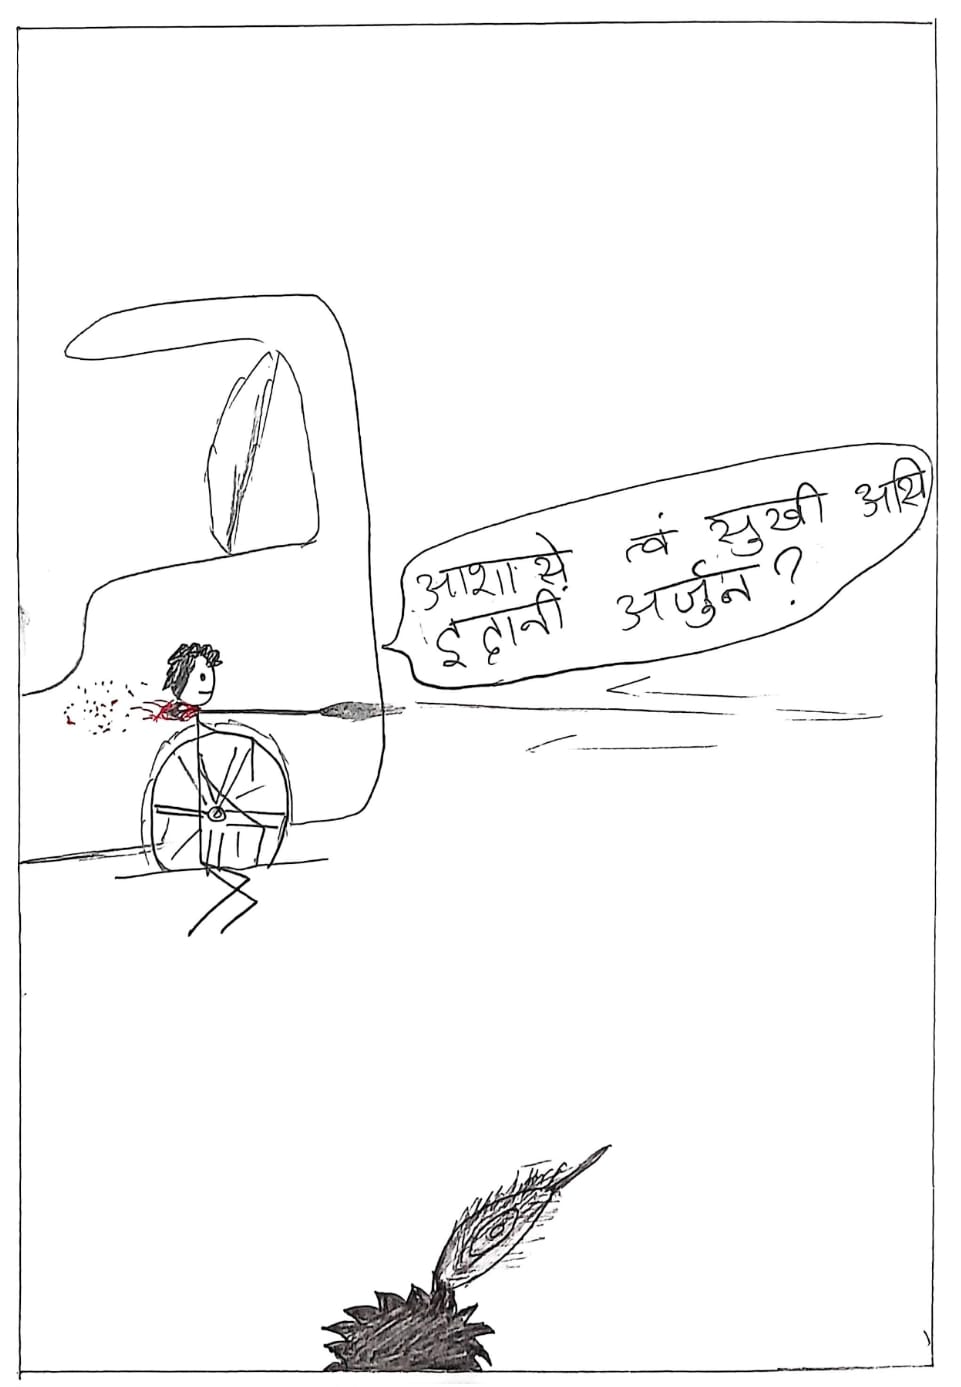 आशासे त्वं सुखी असि
इदानीं अर्जुन?